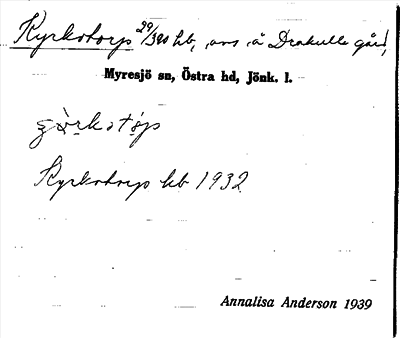 Kyrkotorp 29/320 hb, avs. å Drakulla gård,
Myresjö sn, Östra hd, Jönk. l.
Kyrkotorp hb 1932
Annalisa Anderson 1939